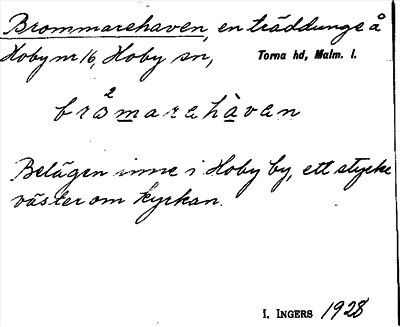 Brommarehaven, en träddunge å
Hoby nr 16, Hoby sn, Torna hd, Malm. l.
bròmarehàven
Belägen inne i Hoby by, ett stycke
väster om kyrkan.
I. INGERS 1928